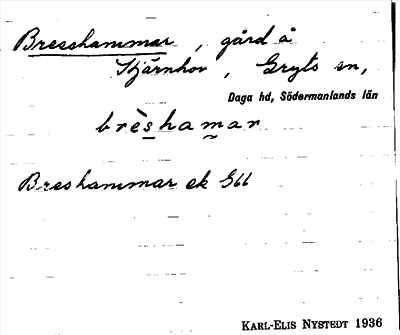 Bresshammar, gård å
Stjärnhov, Gryts sn,
Daga hd, Södermanlands län
brèshamar
Breshammar ek G66
KARL-ELIS NYSTEDT 1936